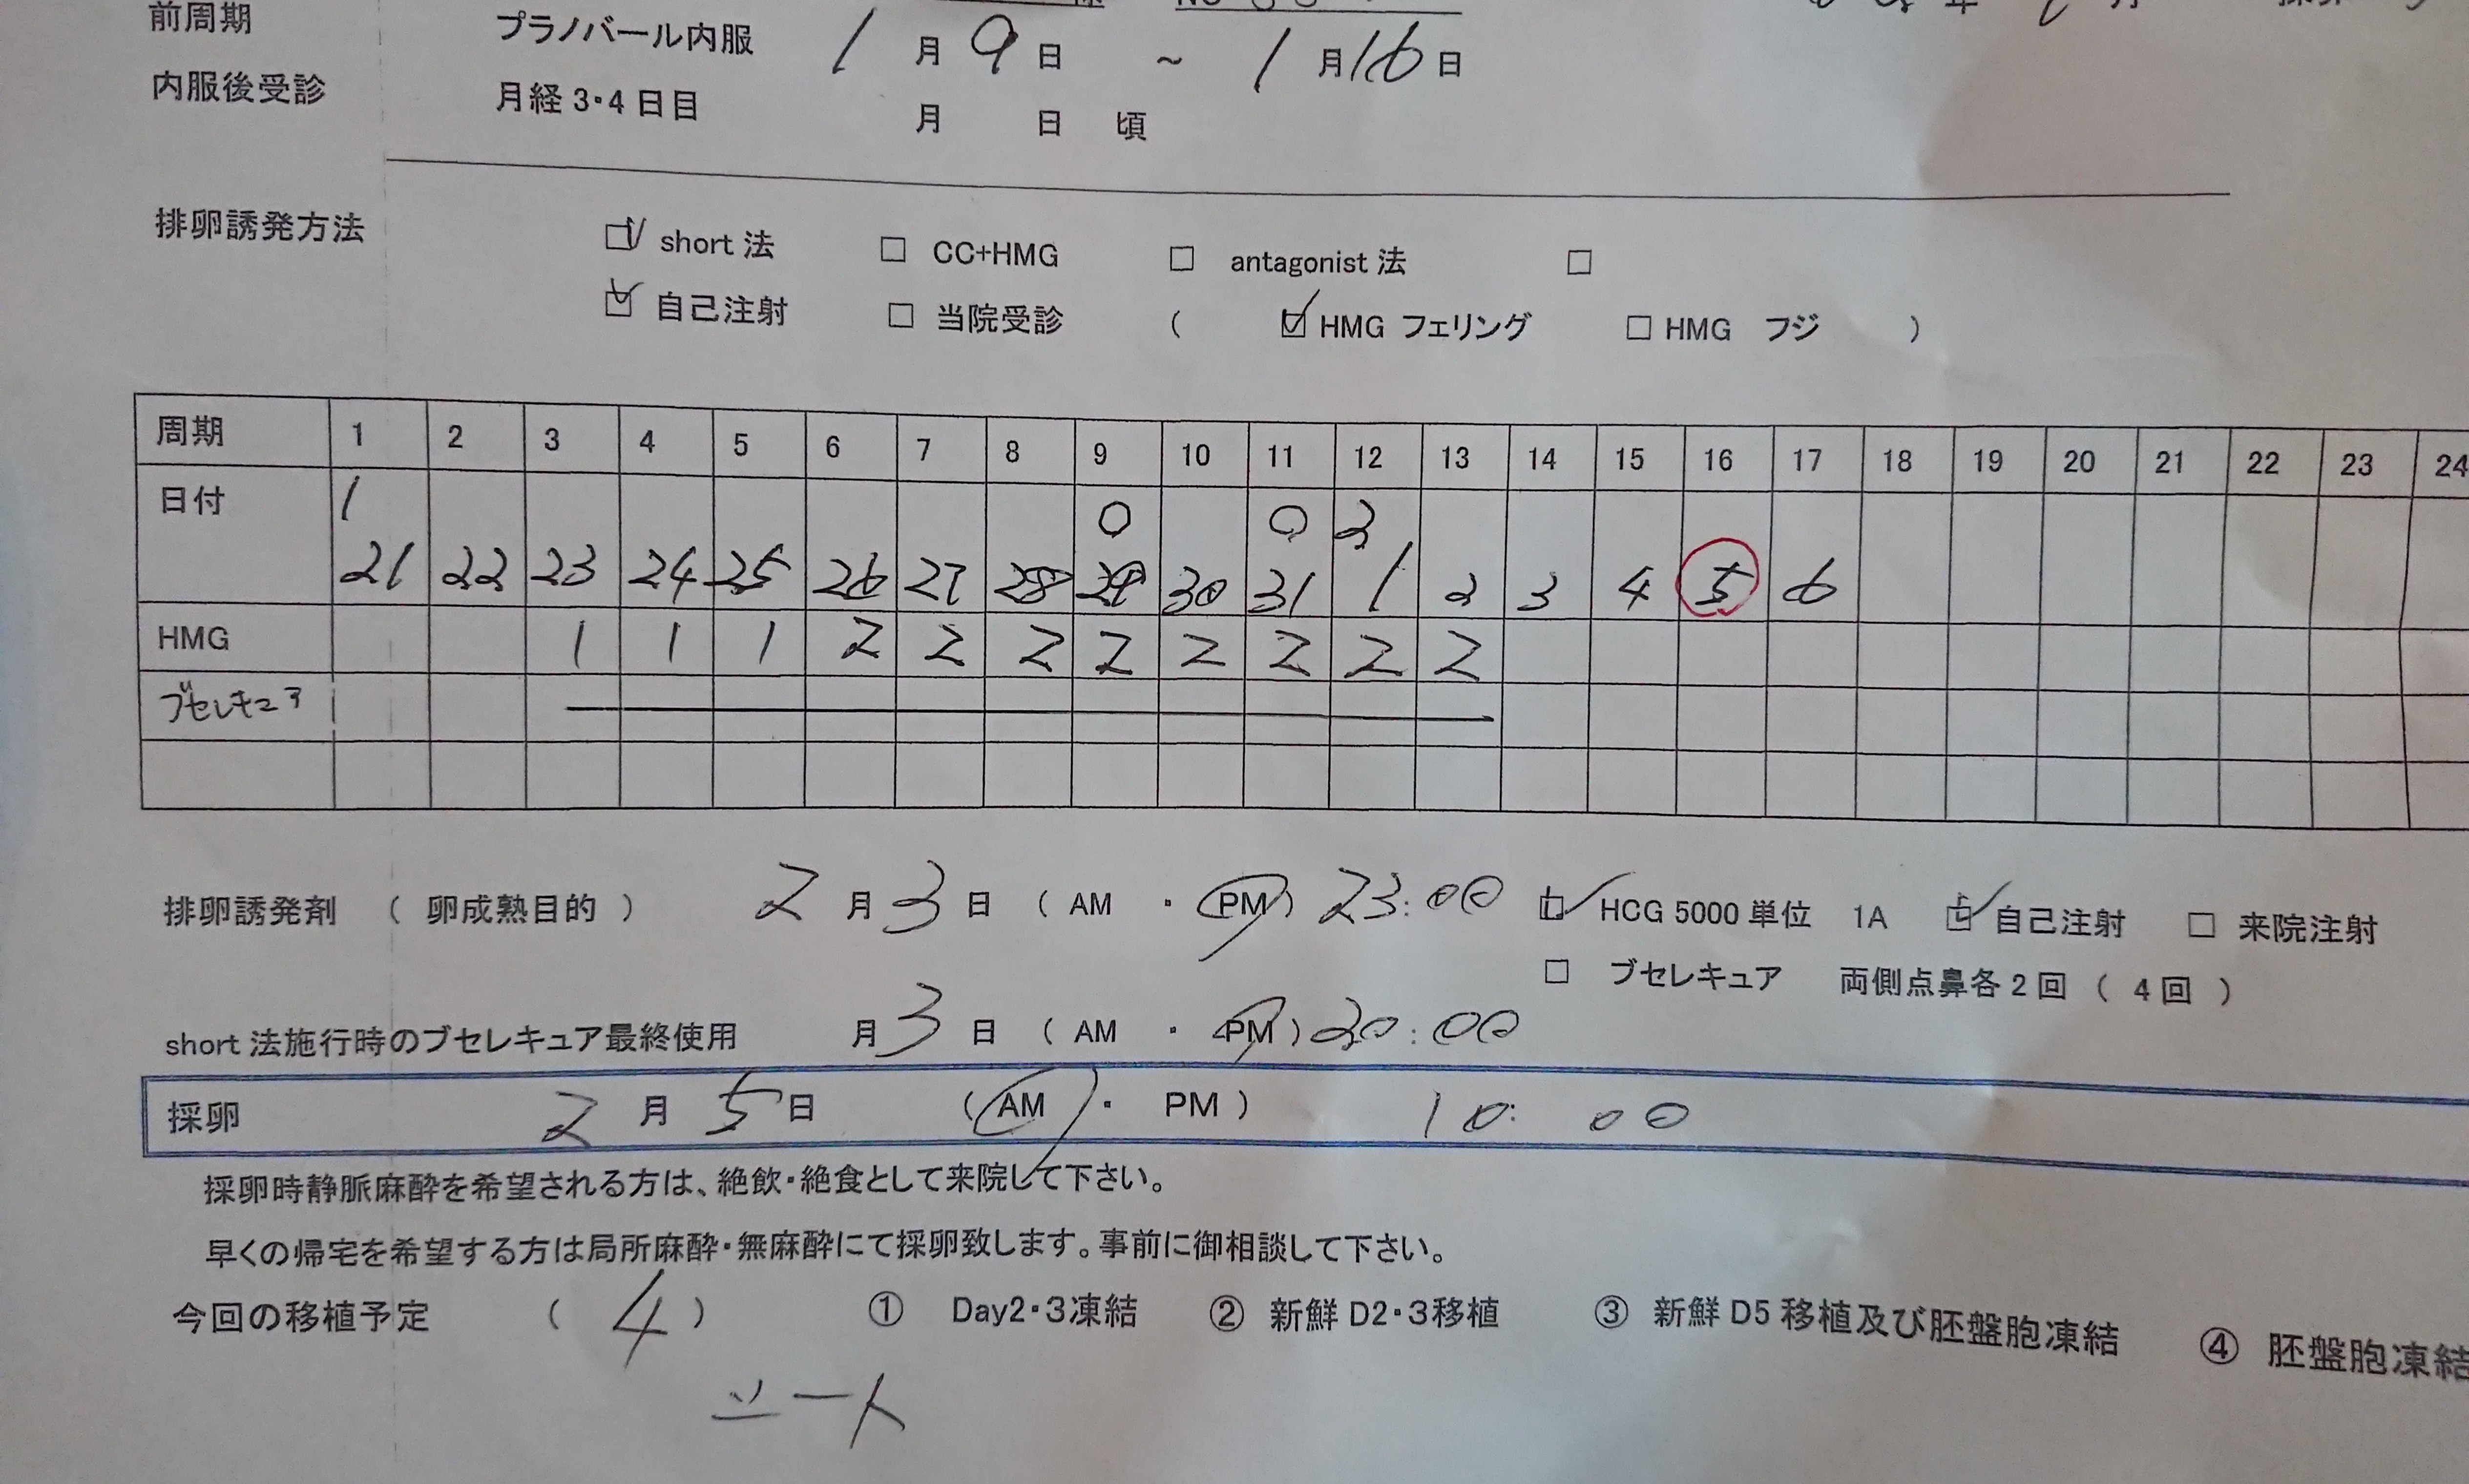 前周期 プラノバール内服 1月9日 ~ 1月16日
内服後受診 月経3・4日目 月 日 頃
排卵誘発方法 ☑ short法 □ CC+HMG □ antagonist法 □
☑ 自己注射 □ 当院受診 ( ☑ HMG フェリング □ HMG フジ )
周期 1 2 3 4 5 6 7 8 9 10 11 12 13 14 15 16 17 18 19 20 21 22 23 24
日付 1 ○ ○ 2
21 22 23 24 25 26 27 28 29 30 31 1 2 3 4 5 6
HMG 1 1 1 2 2 2 2 2 2 2 2
ブセレキュア
排卵誘発剤 ( 卵成熟目的 ) 2月3日 ( AM ・ PM ) 23:00 ☑ HCG 5000単位 1A ☑ 自己注射 □ 来院注射
□ ブセレキュア 両側点鼻各2回 ( 4回 )
short法施行時のブセレキュア最終使用 月3日 ( AM ・ PM ) 20:00
採卵 2月5日 ( AM ・ PM ) 10:00
採卵時静脈麻酔を希望される方は、絶飲・絶食として来院して下さい。
早くの帰宅を希望する方は局所麻酔・無麻酔にて採卵致します。事前に御相談して下さい。
今回の移植予定 ( 4 ) ① Day2・3凍結 ② 新鮮D2・3移植 ③ 新鮮D5移植及び胚盤胞凍結 ④ 胚盤胞凍結